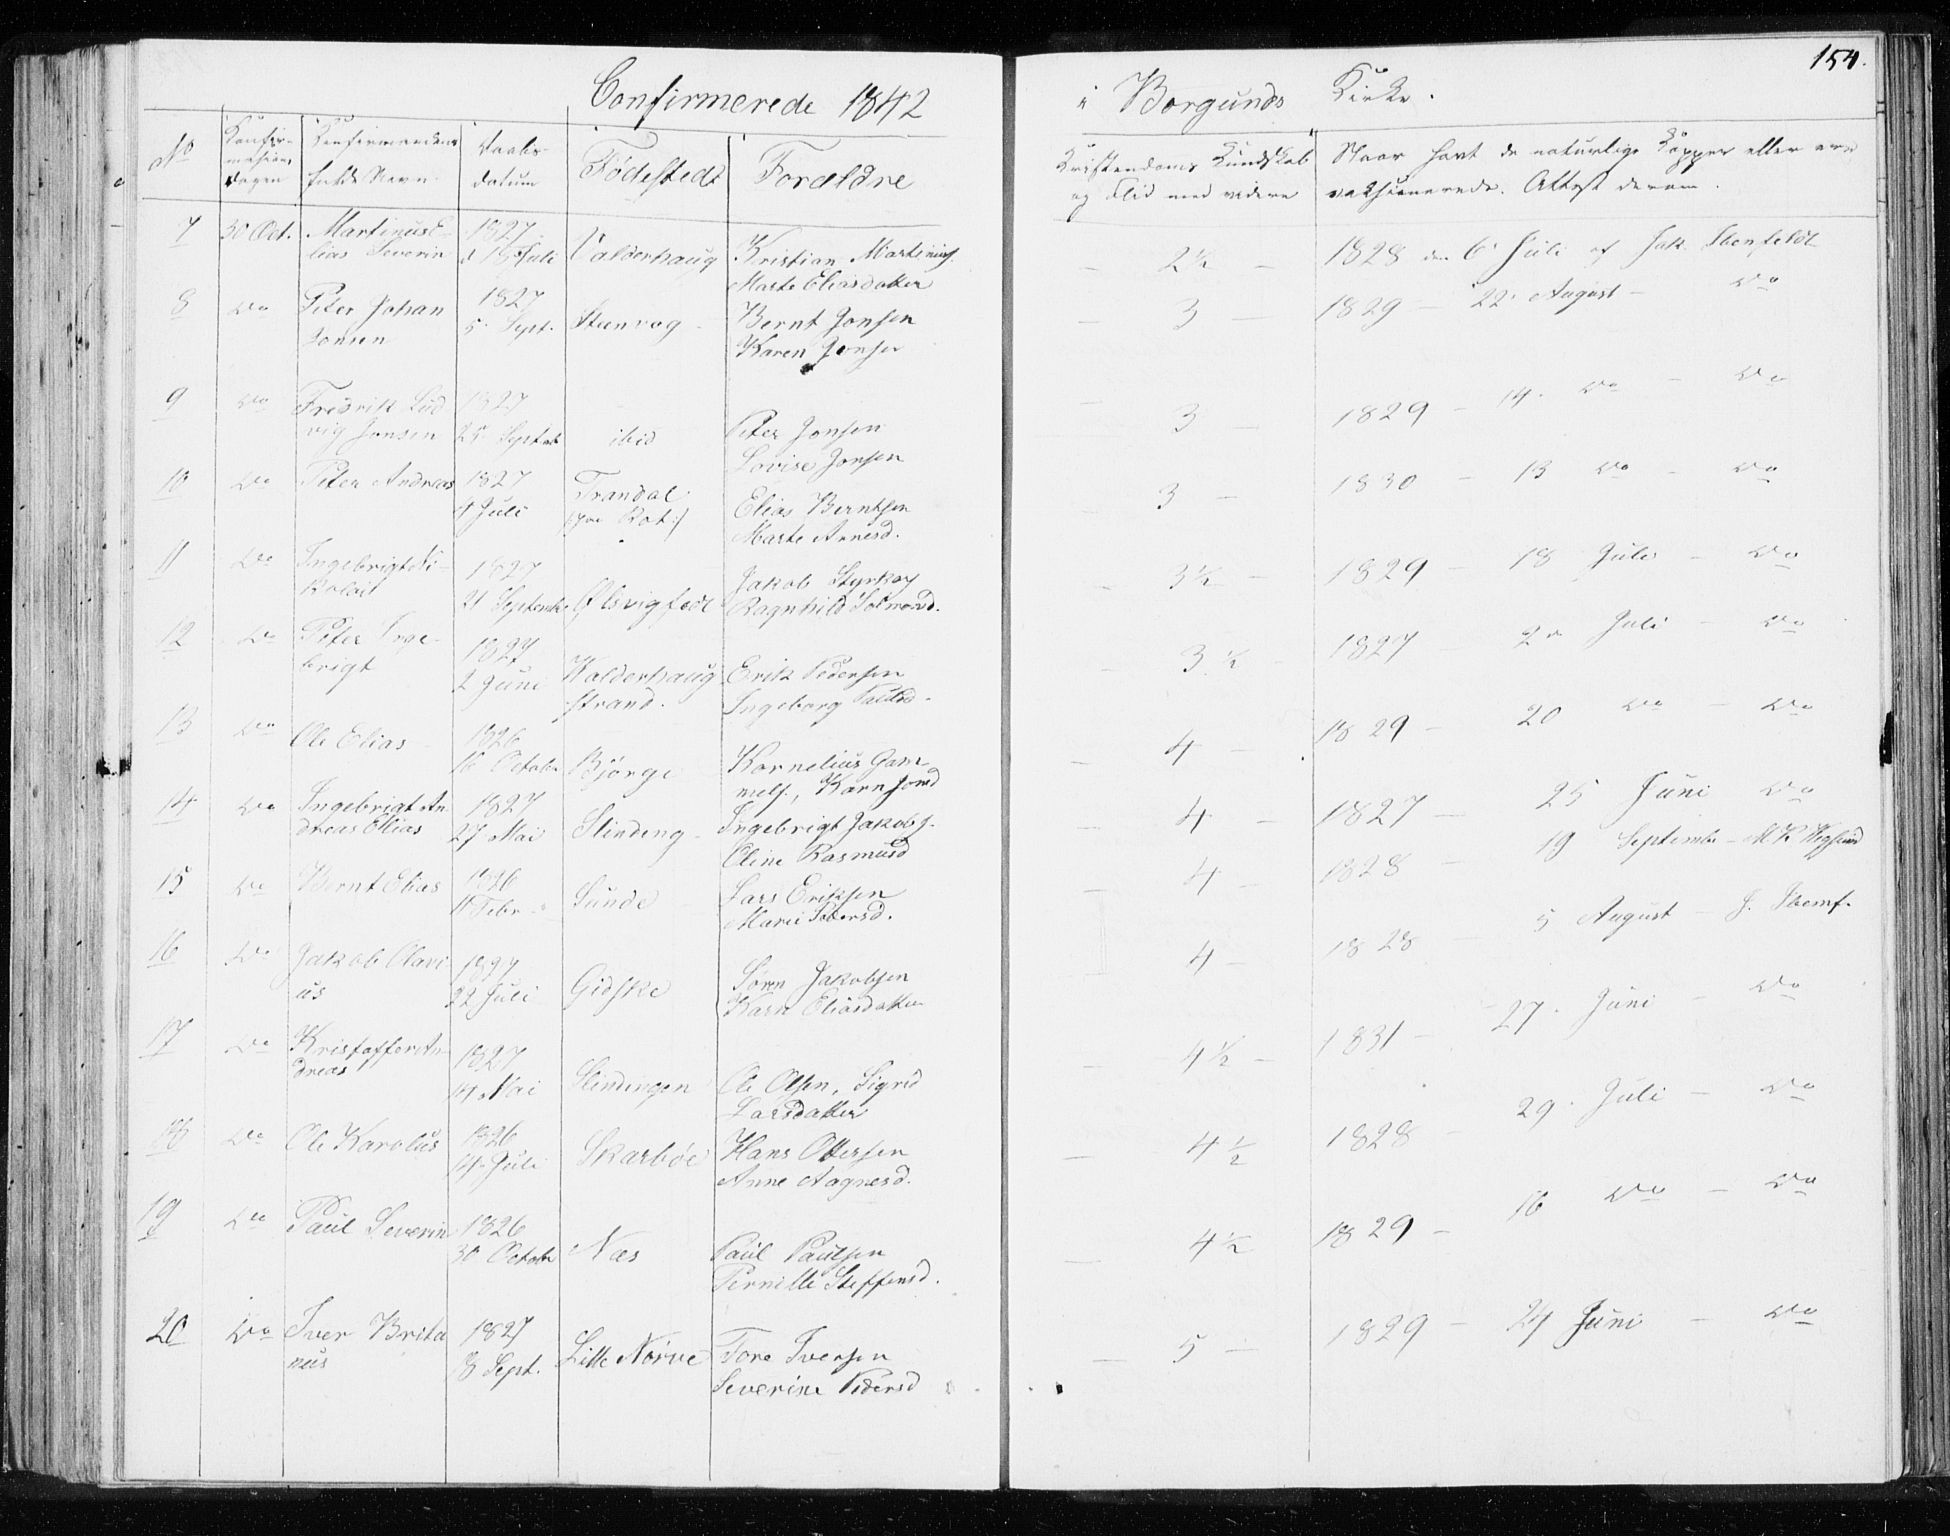 154.
Confirmerede 1842 i Borgunds Kirke.
No
Konfir-
mations
Dagen
Konfirmandens
fulde Navn
Daabs-
datum
Fødestedt
Forældre
Kristendoms Kundskab
og Flid med videre
Naar havt de naturlige Kopper eller ere
vaksinerede. Attest derom.
7 30 Oct. Martinus E-
lias Severin
1827
d 15 Juli
Valderhaug
Kristian Martinius
Marte Eliasdatter
2½ 1828 den 6 Juli af Jak. Ibenfeldt
8 do Peter Johan
Jonsen
1827
5 Sept.
Steenvog
Bernt Jonsen
Karen Jonsen
3 1829 22 August do
9 do Fredrik Lud
vig Jonsen
1827
25 Septob
ibid
Peter Jonsen
Lovise Jonsen
3 1829 14. do do
10 do Peter Andreas
1827
4 Juli
Trandal
Elias Berntsen
Marte Annesd.
3 1830 13 do do
11 do Ingebrigt Ni-
kolai
1827
21 Septembr
Ølsvigfedt
Jakob Styrkas
Ragnhild Salmond.
3½ 1829 18 Juli do
12 do Peter Inge-
brigt
1827
2 Juni
Walderhaug
strand.
Erik Pedersen
Ingeborg Paulsd.
3½ 1827 2 Juli do
13 do Ole Elias
1826
16 Octobr
Bjørge
Kornelius Gam
mels., Karn Jonsd
4 1829 20 do do
14 do Ingebrigt An
dreas Ellias
1827
27 Mai
Slindeng
Ingebrigt Jakobs.
Oline Rasmusd
4 1827 25 Juni do
15 do Bernt Elias
1826
11 Febr
Sunde
Lars Eriksen
Marie Pedersd.
4 1828 19 Septembr M K
16 do Jakob Olavi
us
1827
22 Juli
Gidske
Sørn Jakobsen
Karn Eliasdatter
4 1828 5 August J. Ibenf.
17 do Kristoffer An
dreas
1827
14 Mai
Slindengen
Ole Olsen, Sigrid
Larsdatter
4½ 1831 27. Juni do
18 do Ole Karolus
1826
14. Juli
Skarbøe
Hans Ottersen
Anne Aagnesd.
4½ 1828 29. Juli do
19 do Paul Severin
1826
30 Octobr
Næs
Paul Paulsen
Pernille Steffensd.
4½ 1829 16 do do
20 do Iver Brita
nus
1827
18 Sept.
Lille Nørve
Tore Iversen
Severine Pedersd
5 1829 24 Juni do